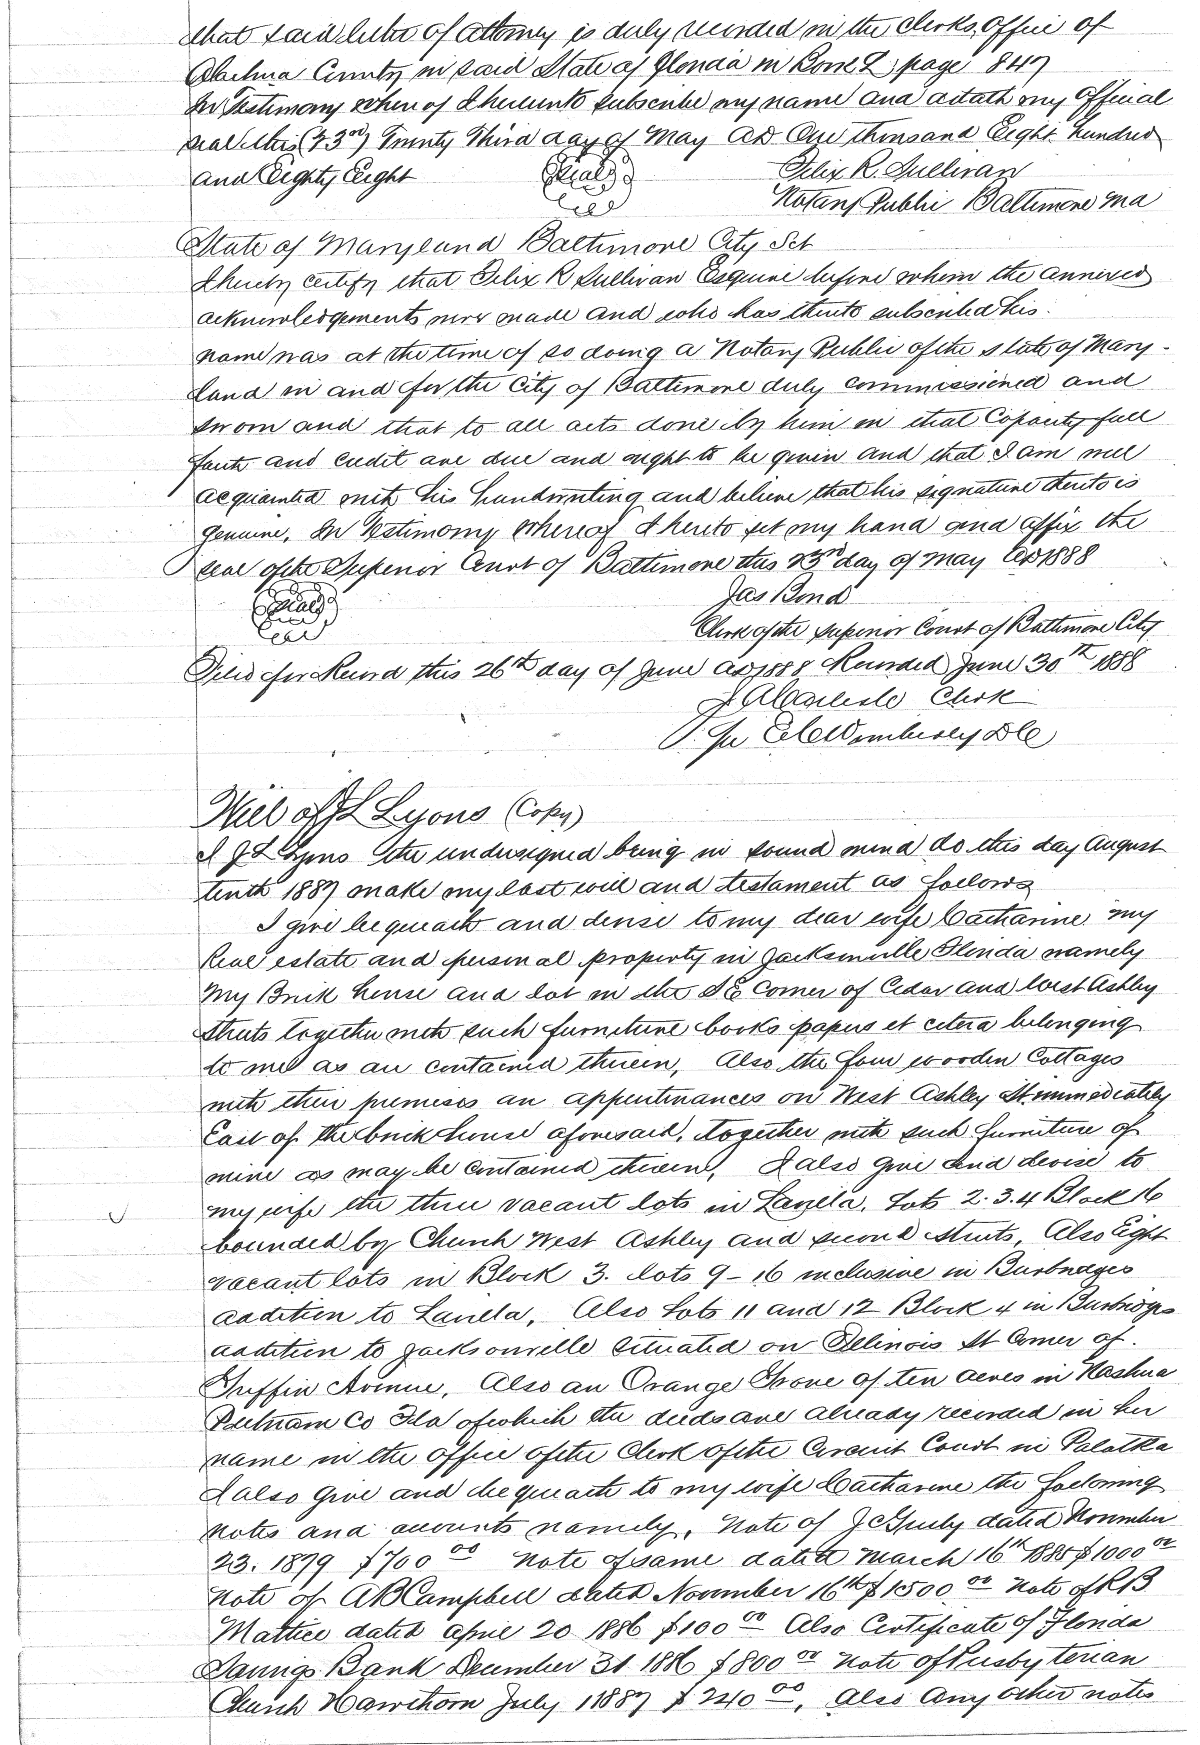 that said letter of attorney is duly recorded in the Clerks Office of
Alachua County in said State of Florida in Book L page 847
In Testimony whereof I hereunto subscribe my name and attach my Official
seal this (23rd) Twenty Third day of May AD One thousand Eight hundred
and Eighty Eight (Seal) Felix R. Sullivan
Notary Public Baltimore Md
State of Maryland Baltimore City Sct
I hereby certify that Felix R Sullivan Esquire before whom the annexed
acknowledgements were made and who has thereto subscribed his
name was at the time of so doing a Notary Public of the State of Mary-
land in and for the City of Baltimore duly commissioned and
sworn and that to all acts done by him in that Capacity full
faith and credit are due and ought to be given and that I am well
acquainted with his handwriting and believe that his signature thereto is
genuine. In Testimony Whereof I hereto set my hand and affix the
seal of the Superior Court of Baltimore this 23rd day of May AD 1888
(Seal) Jas Bond
Clerk of the Superior Court of Baltimore City
Filed for Record this 26th day of June AD 1888 Recorded June 30th 1888
J A Carlisle Clerk
Per Wimberly D C
Will of J L Lyons (Copy)
I J L Lyons the undersigned being in sound mind do this day August
tenth 1887 make my last will and testament as follows
I give bequeath and devise to my dear wife Catharine my
Real estate and personal property in Jacksonville Florida namely
My Brick house and lot on the S E corner of Cedar and West Ashley
Streets together with such furniture books papers et cetera belonging
to me as are contained therein, Also the four wooden Cottages
with their premises an appertinances on West Ashley St immediately
East of the brick house aforesaid, together with such furniture of
mine as may be contained therein, I also give and devise to
my wife the three vacant lots in Lavilla, Lots 2. 3. 4 Block 16
bounded by Church West Ashley and second streets, Also Eight
vacant lots in Block 3. lots 9-16 inclusive in Burbridges
addition to Lavilla, Also Lots 11 and 12 Block 4 in Burbridges
addition to Jacksonville situated on Illinois St Corner of
Griffin Avenue, Also an Orange Grove of ten acres in Nashua
Putnam Co Fla of which the deeds are already recorded in her
name in the office of the Clerk of the Circuit Court in Palatka
I also give and bequeath to my wife Catharine the following
notes and accounts namely, Note of J C dated November
23. 1879 $700 00 Note of same dated March 16th 1885 $1000 00
Note of A B Campbell dated November 16th $1500 00 Note of R B
Mattice dated April 20 1886 $100 00 Also Certificate of Florida
Savings Bank December 31 1886 $800 00 Note of Presbyterian
Church Hawthorn July 1 1887 $240 00, Also Any other notes